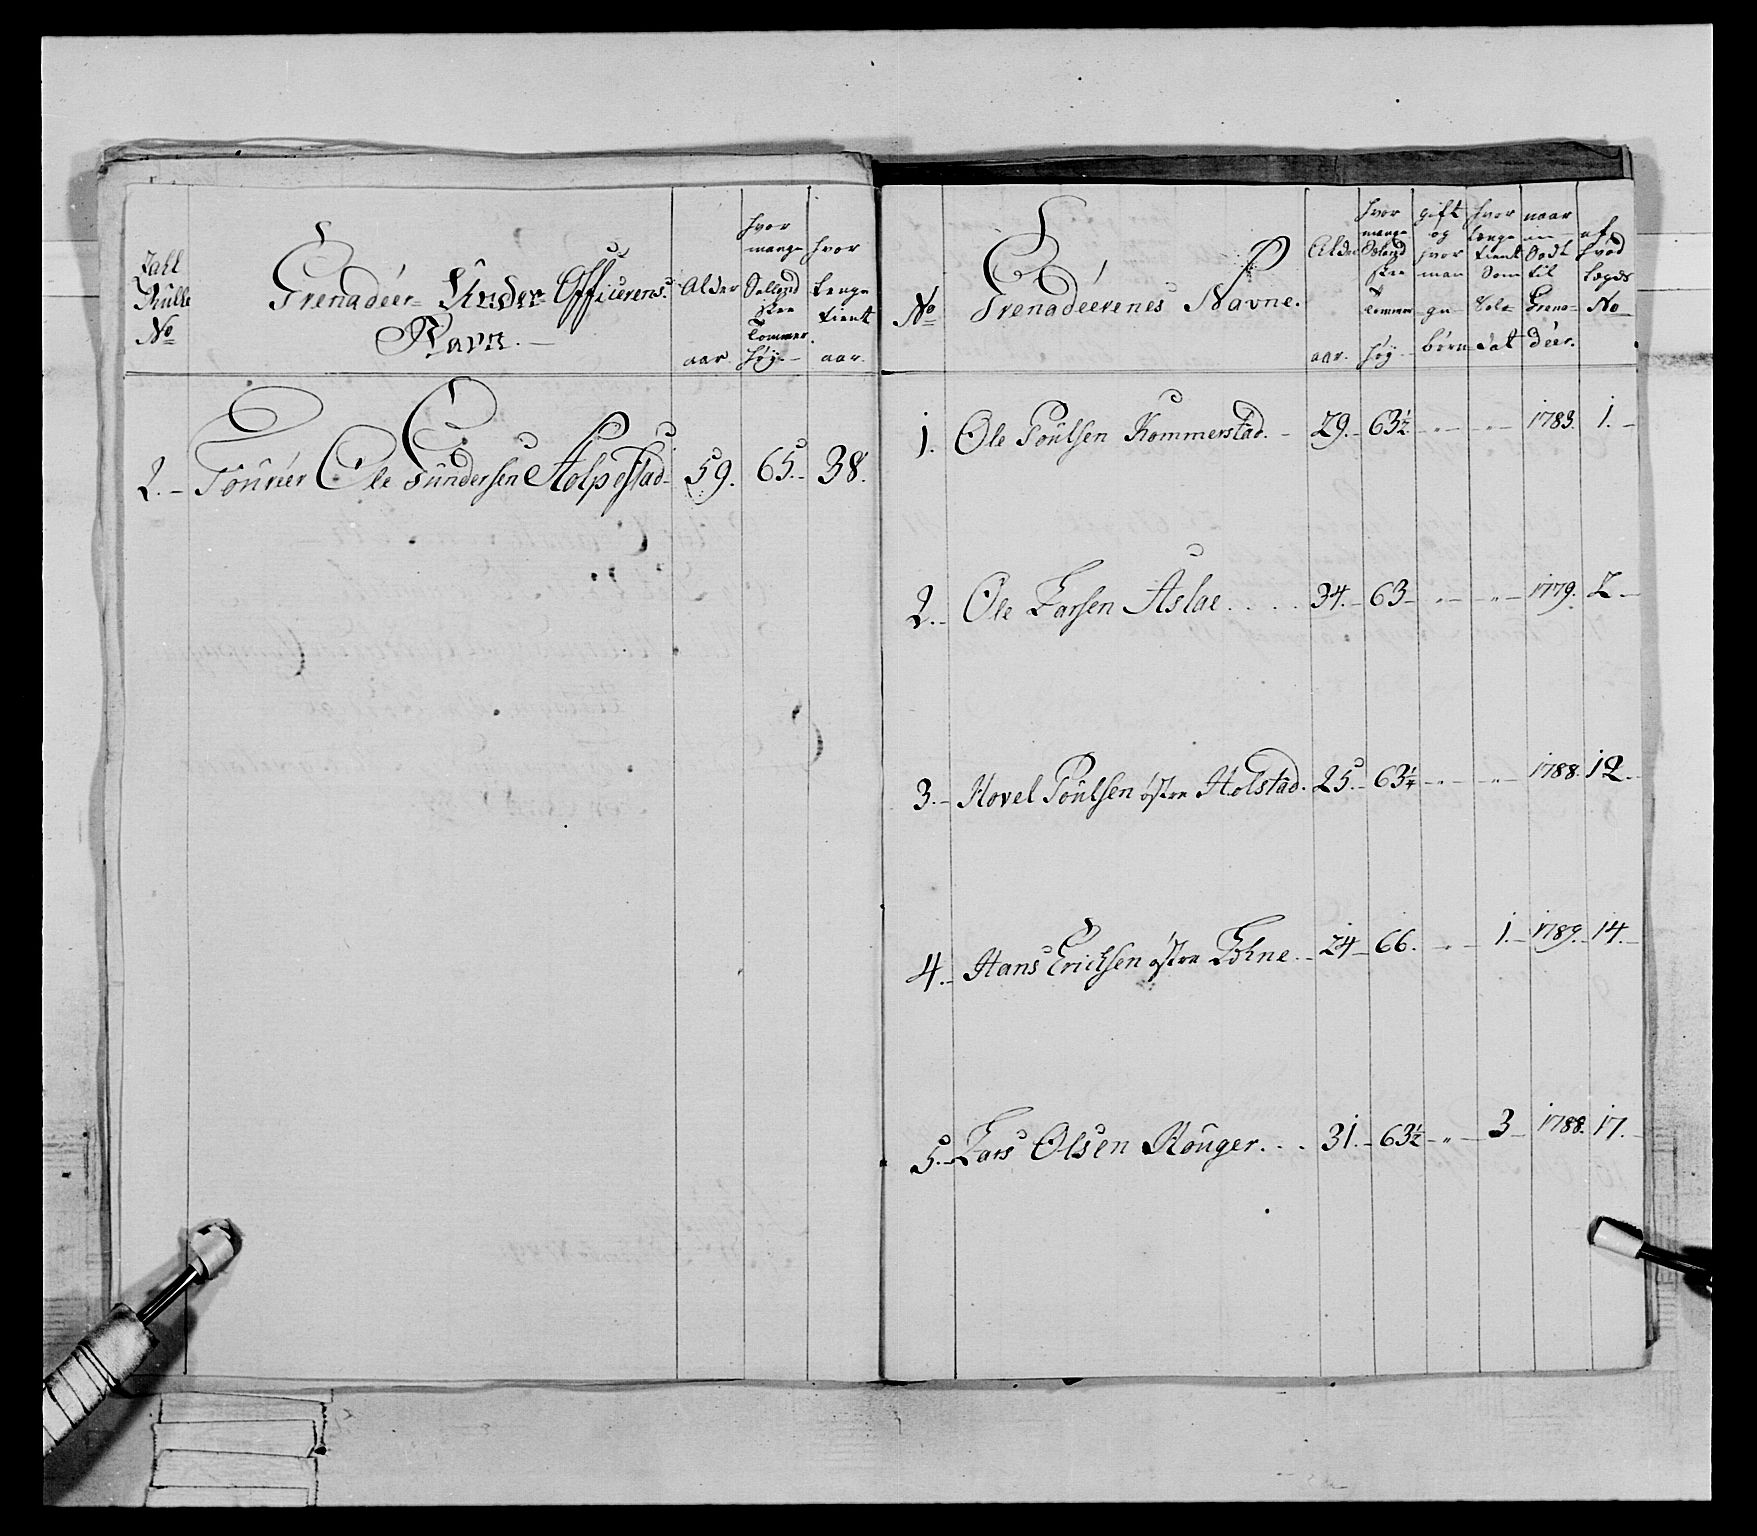 Tahl
Rulle
No
Grenadéer Under Officerens
Navn.
Alder
aar
hvor
mange
Selland
ske
Tommer
høy
hvor
lenge
tient
aar.
2. Fourér Ole Gundersen Holpestad 59. 65. 38.
No
Grenadéerenes Navne.
Alder
aar.
hvor
mange
Seland
ske
tommer
høy
gift
og
hvor
man
ge
børn
hvor
længe
tient
Som
Sol
dat
naar
Sadt
til
Grena
déer.
af
hvad
Lægds
No
1. Ole Poulsen Kommerstad. 29. 63½ " " 1783. 1.
2. Ole Larsen Aslae . . . . 34. 63 " " 1779. 2
3. Hovel Poulsen østre Holstad. 25. 63¼ " " 1788. 12
4. Hans Ericksen østre Løhne. 24 66. " 1. 1789. 14.
5. Lars Olsen Rouger. . . 31. 63½ " 3 1788. 17.